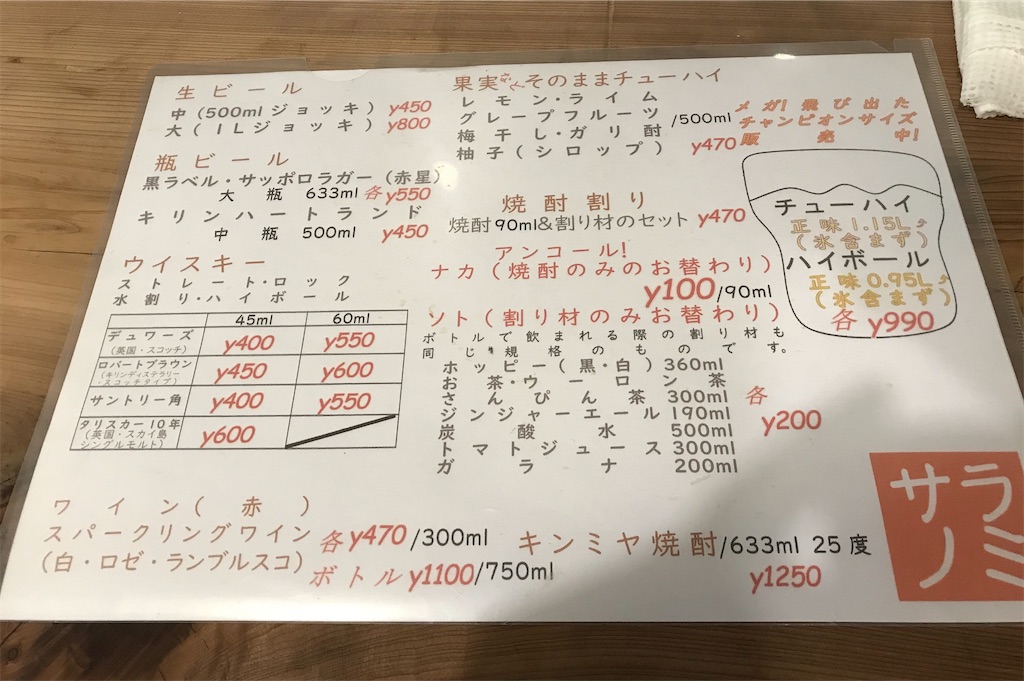 生ビール
中(500mlジョッキ) y450
大(1Lジョッキ) y800
瓶ビール
黒ラベル・サッポロラガー(赤星)
大瓶 633ml 各y550
キリンハートランド
中瓶 500ml y450
ウイスキー
ストレート・ロック
水割り・ハイボール
45ml 60ml
デュワーズ y400 y550
(英国・スコッチ)
ロバートブラウン y450 y600
(キリンディステラリー
・スコッチタイプ)
サントリー角 y400 y550
タリスカー10年 y600
(英国・スカイ島
シングルモルト)
ワイン(赤)
スパークリングワイン
(白・ロゼ・ランブルスコ)
各y470/300ml
ボトルy1100/750ml
果実そのままチューハイ
レモン・ライム
グレープフルーツ
梅干し・ガリ酎
柚子(シロップ)
/500ml
y470
焼酎割り
焼酎90ml&割り材のセット y470
アンコール!
ナカ(焼酎のみのお替わり)
y100/90ml
ソト(割り材のみお替わり)
ボトルで飲まれる際の割り材も
同じ規格のものです。
ホッピー(黒・白) 360ml
お茶・ウーロン茶
さんぴん茶 300ml
ジンジャーエール 190ml
炭酸水 500ml
トマトジュース 300ml
ガラナ 200ml
各
y200
キンミヤ焼酎/633ml 25度
y1250
メガ!飛び出た
チャンピオンサイズ
販売中!
チューハイ
正味1.15L
(氷含まず)
ハイボール
正味0.95L
(氷含まず)
各y990
サラ
ノミ